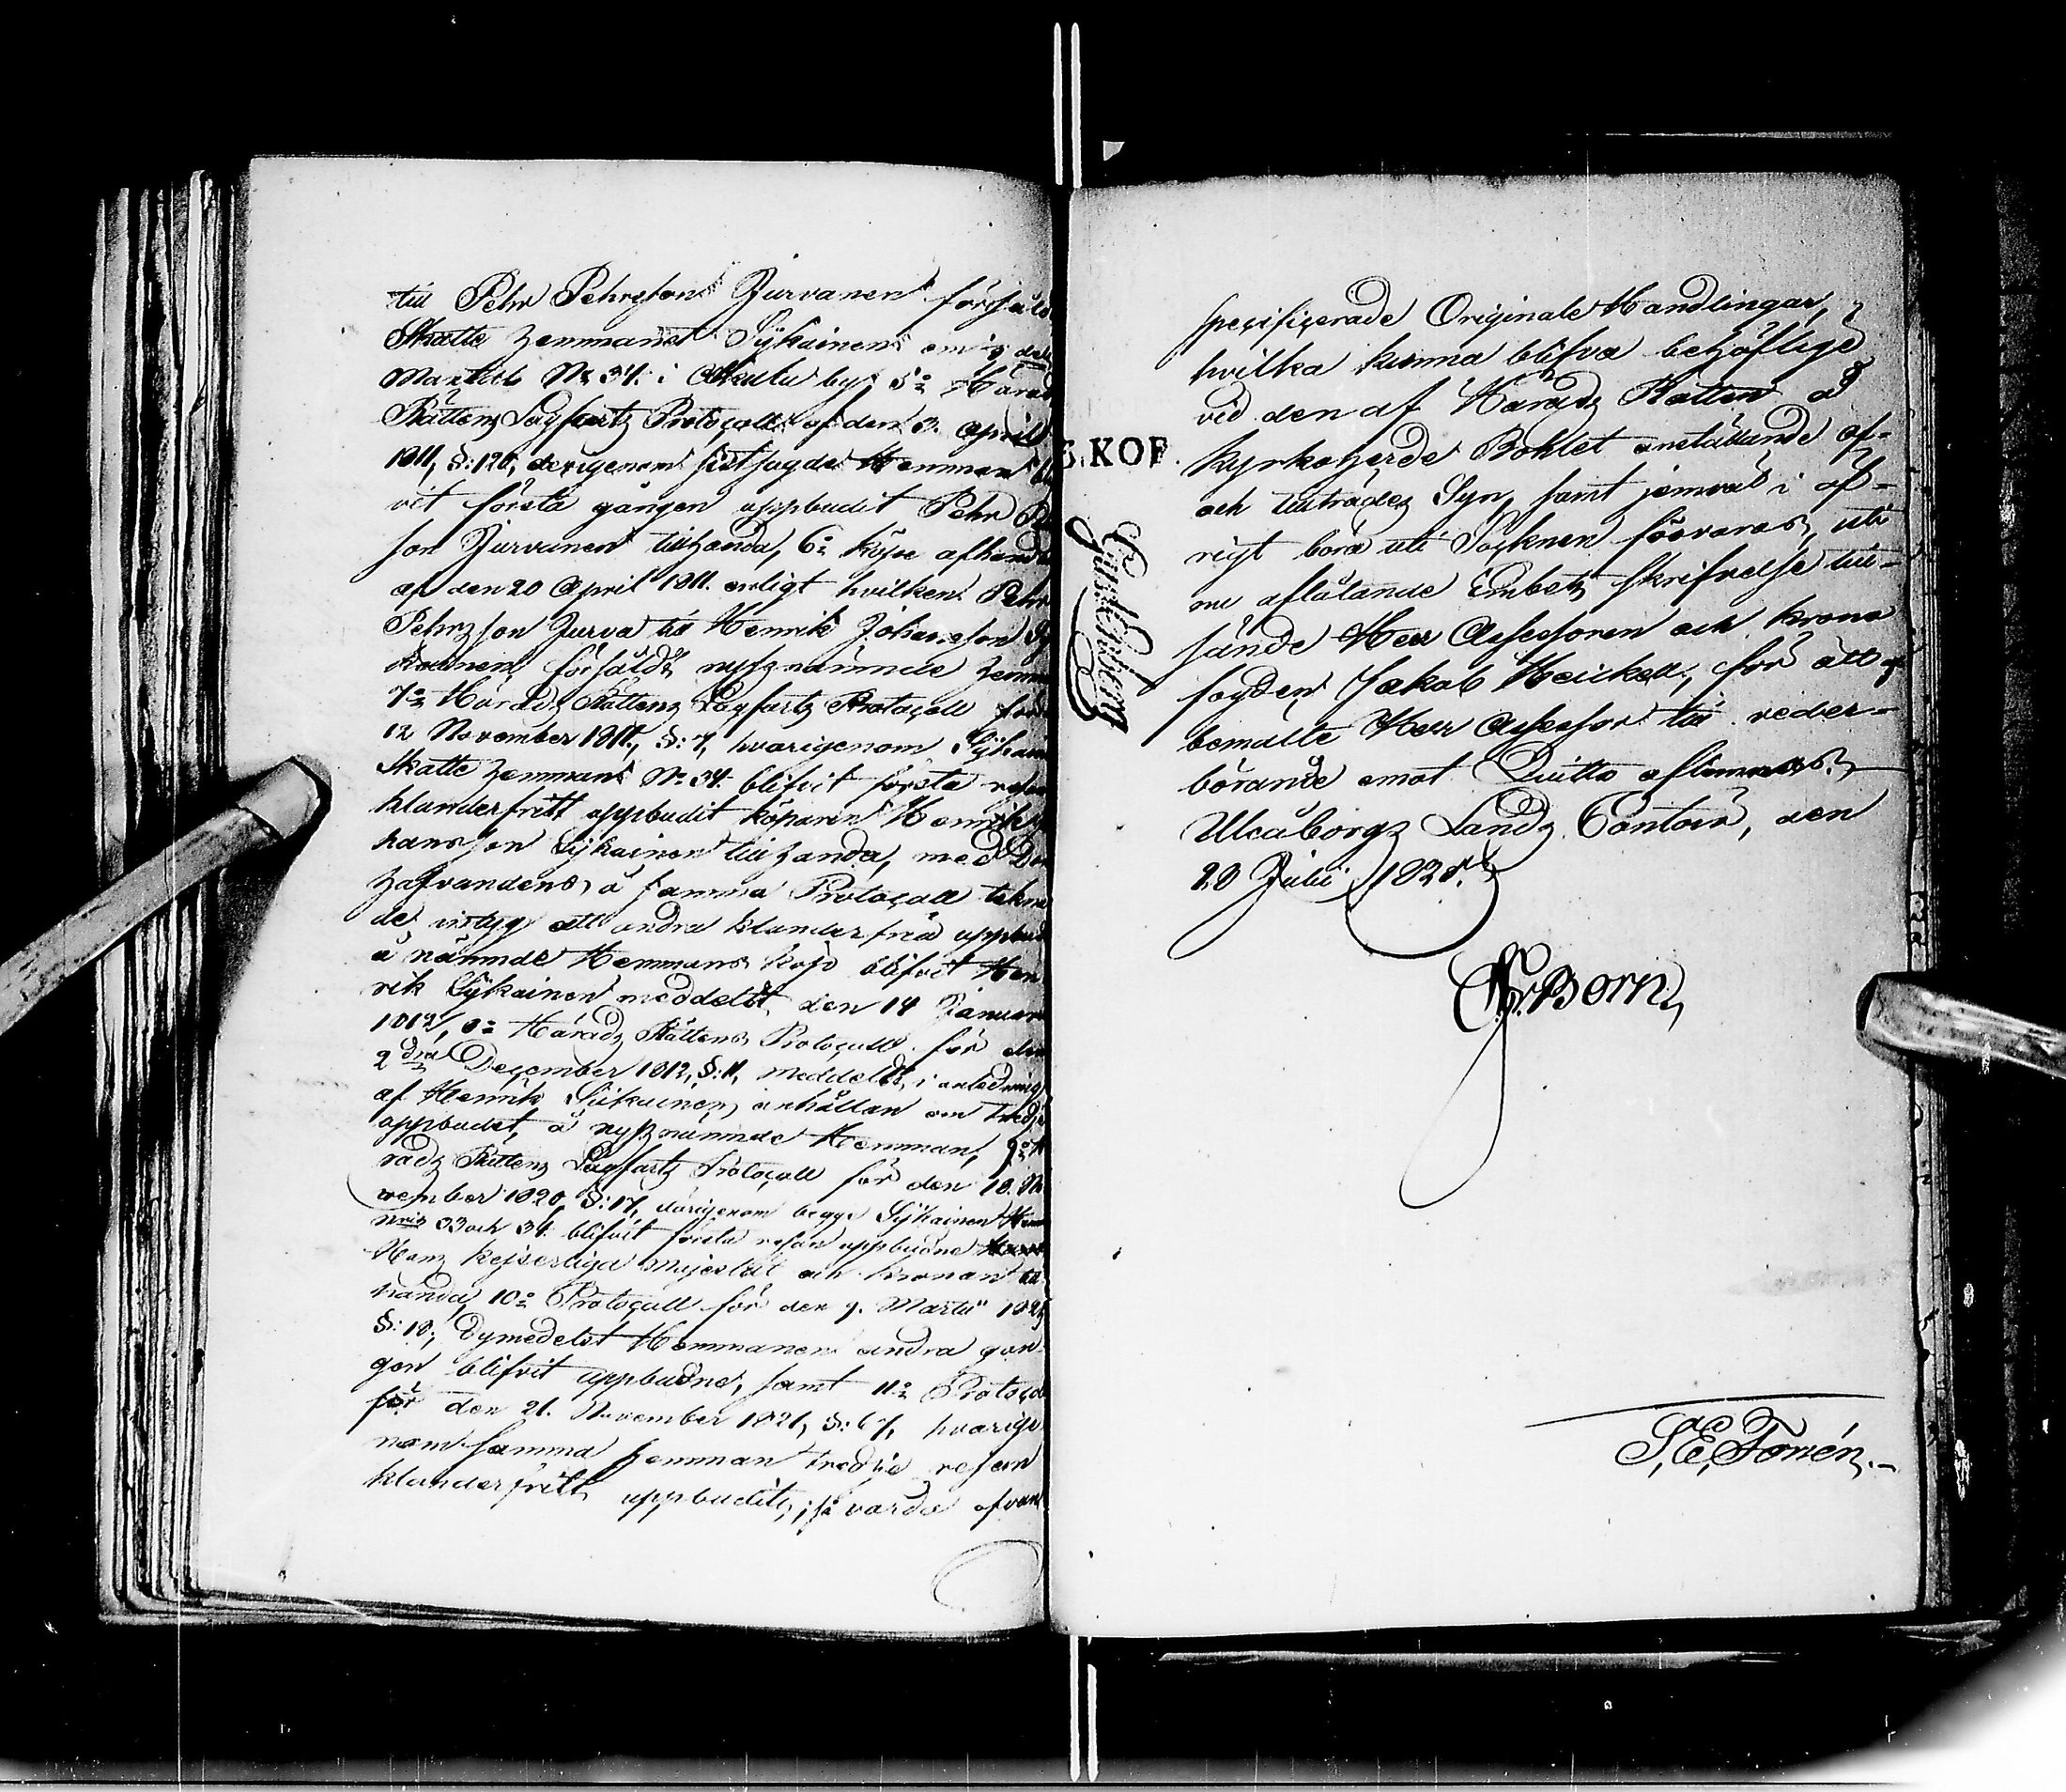 till Pehr Pehrsson Jurvanen försåld
Skatte hemmanet Sykäinen om
Mantal No 34. i Okulu by, 5o Härad
Rättens Lagfarts Protocoll af den 3. April
1811, §: 120, derigenom sistsagde Hemman bli
vit första gången uppbudit Pehr Pe
son Jurvanen tillhanda, 6o Köpe afhand
af den 20 April 1811. enligt hvilken Pehr
Pehrsson Jurva till Henrik Johansson Sy
käinen försåldt nyssnämnde hemm
7o Härads Rättens Lagfarts Protocoll för
12 November 1811, §: 7, hvarigenom Sykäi
Skatte hemmanet No 34. blifvit första resan
klanderfritt uppbudit köparen Henrik
hansson Sykäinen tillhanda, med Dom
hafvandens å samma Protocoll tekna
de intyg att andra klanderfria uppbud
å nämnde Hemmans köp blifvit Hen
rik Sykäinen meddelt den 14 Januarii
1812, 8o Härads Rättens Protocoll för den
2dra December 1812, §: 11, meddelt, i anledning
af Henrik Sikäinens anhållan om tredje
uppbudet, å nyssnämnde Hemman, 9o H
rads Rättens Lagfarts Protocoll för den 18. No
vember 1820, §: 17, därigenom begge Sykäinen Hem
Nris 33 och 34 blifvit första resan uppbudne
Hans Kejserliga Majestät och Kronan till
handa, 10o Protocoll för den 9. Martii 1821
§: 18; Dymedelst Hemmanen andra gån
gen blifvit uppbudne, samt 11o Protocoll
för den 21. November 1821, §: 67, hvarige
nom samma hemman tredje resan
klanderfritt uppbudits; så varda ofvan
specificerade Originale Handlingar,
hvilka kunna blifva behöflige
vid den af Härads Rätten å
Kyrkoherde Bohlet anställande af-
och tillträdes Syn, samt jemväl i öf-
rigt böra uti Socknen förvaras, uti
nu aflåtande Embets skrifvelse till-
sände Herr Assessoren och Krono
fogden Jakob Heickell, för att af
bemälte Herr Assessor till veder-
börande emot Quitto aflemnas.
Uleåborgs Lands Contoir, den
28 Julii 1828.
Born
S, E, Tornén.
S. KOP.